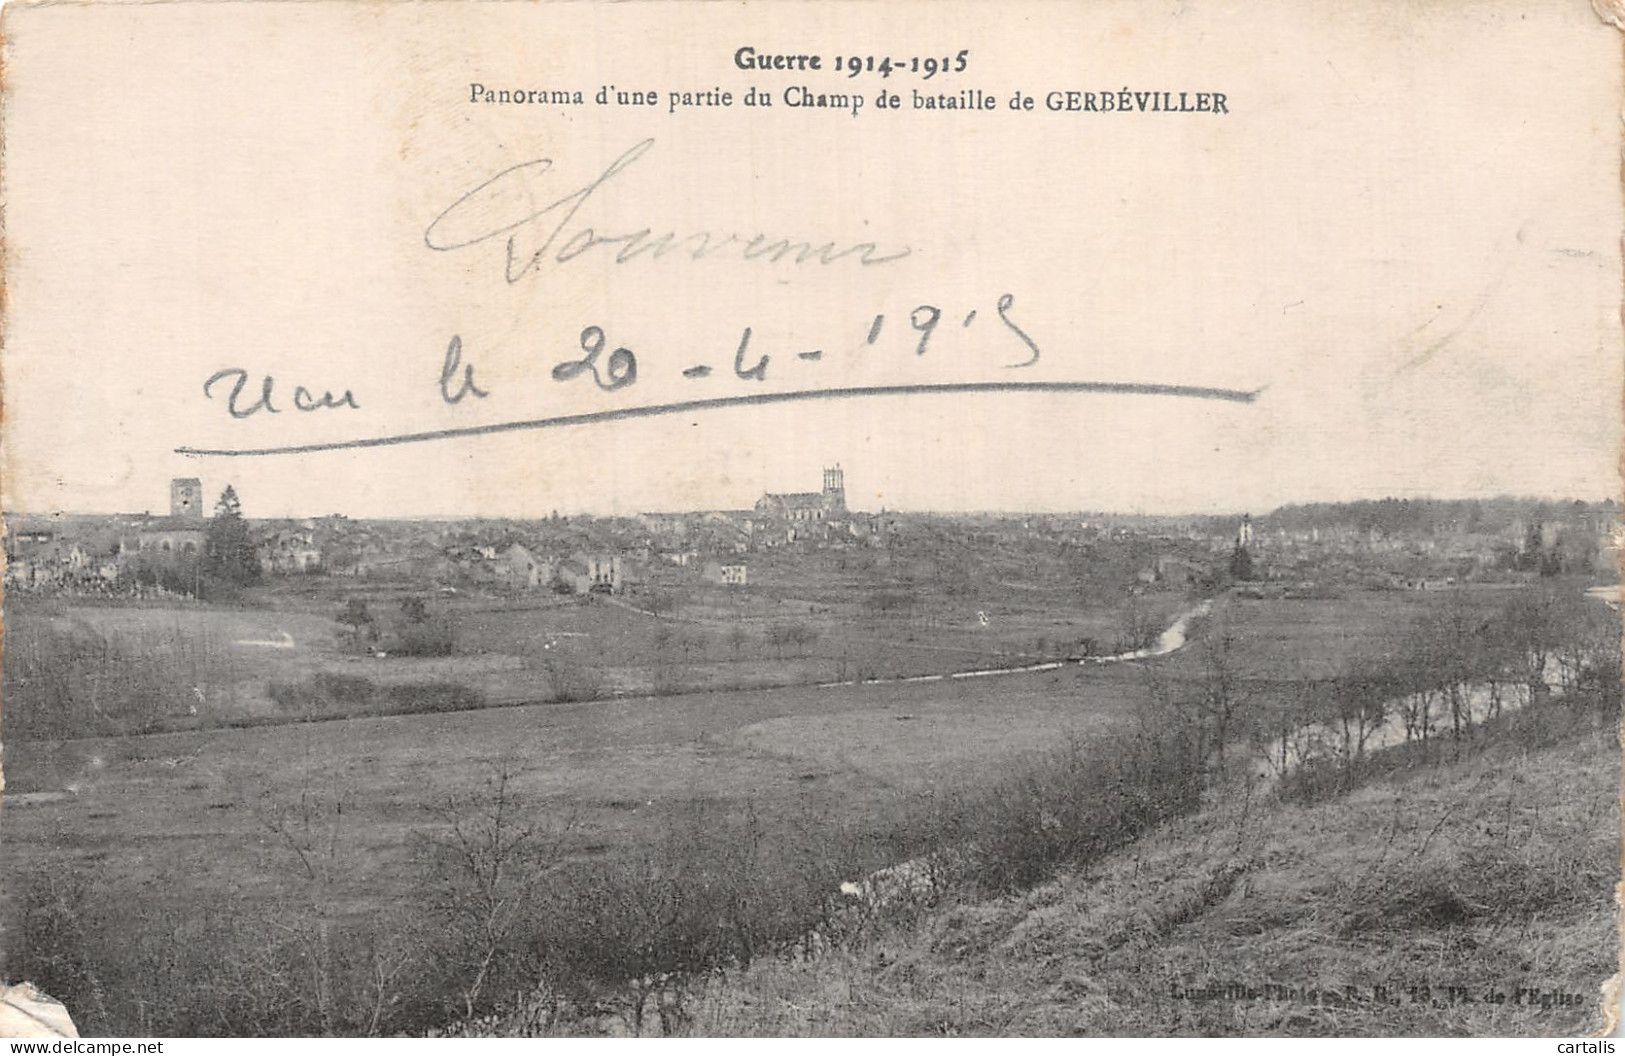 Guerre 1914-1915
Panorama d'une partie du Champ de bataille de GERBÉVILLER
Souvenir
Vau le 20-4-1915
Lunéville-Photo, E. R., 13, Pl. de l'Eglise
delcampe.net
cartalis